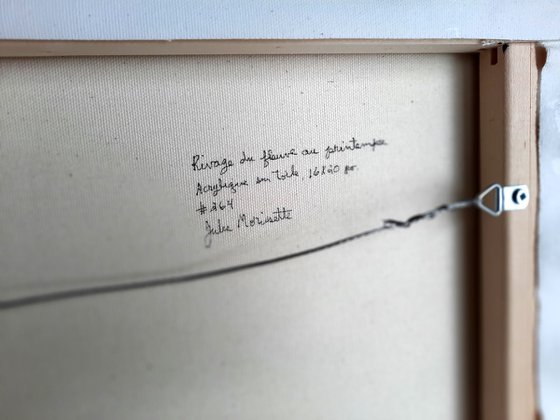 Rivage du fleuve au printemps
Acrylique sur toile, 16x20 po
#264
Julie Morissette